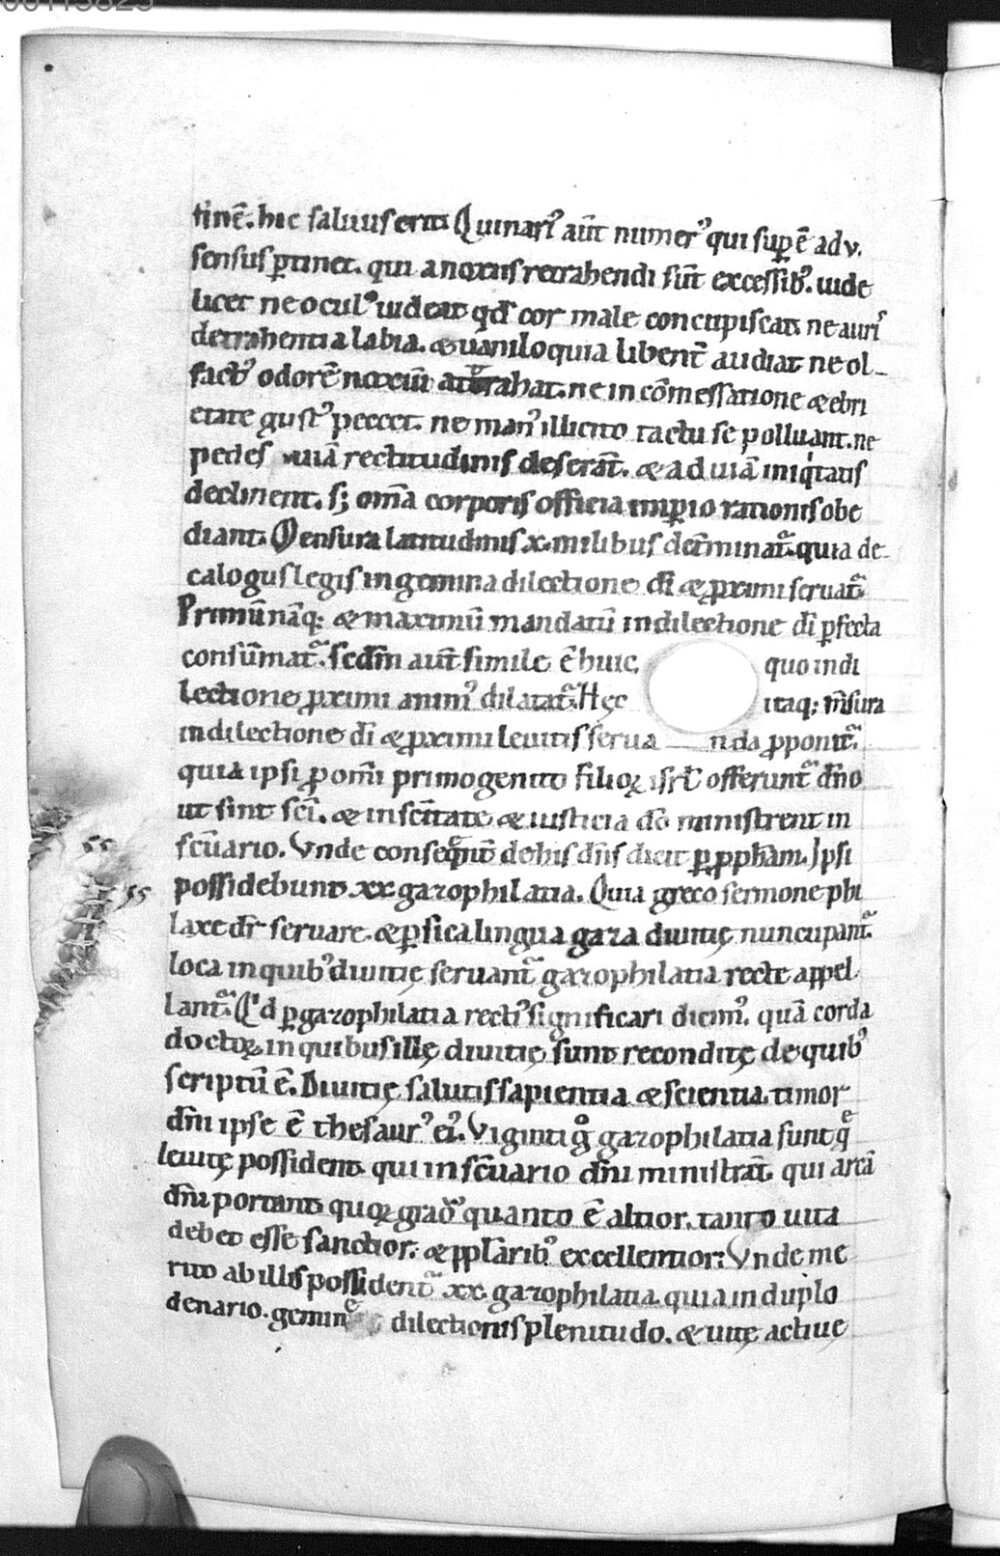 tinē. hic saluus erit. Quinariꝰ aūt numerꝰ qui suꝑ ē ad v.
sensus ꝑtinet. qui a noxiis retrahendi sūt excessibꝫ. uide
licet ne oculꝰ uideat qđ cor male concupiscat. ne auris
detrahentia labia. & uaniloquia libent̄ audiat ne ol-
factꝰ odorē noxiū attrahat. ne in cōmessatione & ebri
etate gustꝰ peccet. ne manꝰ illicito tactu se polluant. ne
pedes uiā rectitudinis deserāt. & ad uiā iniqͥtatis
declinent. sꝫ om̄a corporis officia imꝑio rationis obe
diant. Mensura latitudinis x. milibus det̄minat᷑. quia de-
calogus legis in gemina dilectione dī & ꝓximi seruat᷑.
Primū nāqꝫ & maximū mandatū in dilectione dī ꝑfecta
consūmat᷑. Secd̄m aūt simile ē huic. quo in di
lectione ꝓximi animꝰ dilatat᷑. Hęc itaqꝫ m̄sura
in dilectione dī & ꝓximi leuitis serua nda ꝓponit᷑.
quia ipsi ꝓ om̄i primogenito filioꝝ isrl̄ offerunt᷑ dn̄o
ut sint sc̄i. & in sc̄itate & iusticia dō ministrent in
sc̄uario. Vnde conseq̄nt̄ de his dn̄s dicit ꝑ ꝓph̄am. Ipsi
possidebunt xx gazophilatia. Quia greco sermone phi
laxe dr̄ seruare. & ꝑsica lingua gaza diuitię nuncupant᷑.
loca in quibꝫ diuitię seruant᷑ gazophilatia recte appel
lant᷑. Qͥd ꝑ gazophilatia rectiꝰ significari dicimꝰ. quā corda
doctoꝝ. in quibus illę diuitię sunt reconditę de quibꝫ
scriptū ē. Diuitię salutis sapientia & scientia. timor
dn̄i ipse ē thesaurꝰ eiꝰ. Viginti gͦ gazophilatia sunt q̄
leuitę possident qui in sc̄uario dn̄i ministrāt. qui arcā
dn̄i portant. quoꝝ gradꝰ quanto ē altior. tanto uita
debet esse sanctior. & pplāribꝫ excellentior. Vnde me
rito ab illis possident᷑ xx. gazophilatia. quia in duplo
denario. geminę dilectionis plenitudo. & uitę actiuę